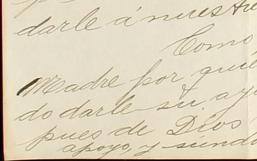 darle á nuestra
Como
Madre por quie
do darle su ayu
pues de Dios
apoyo y